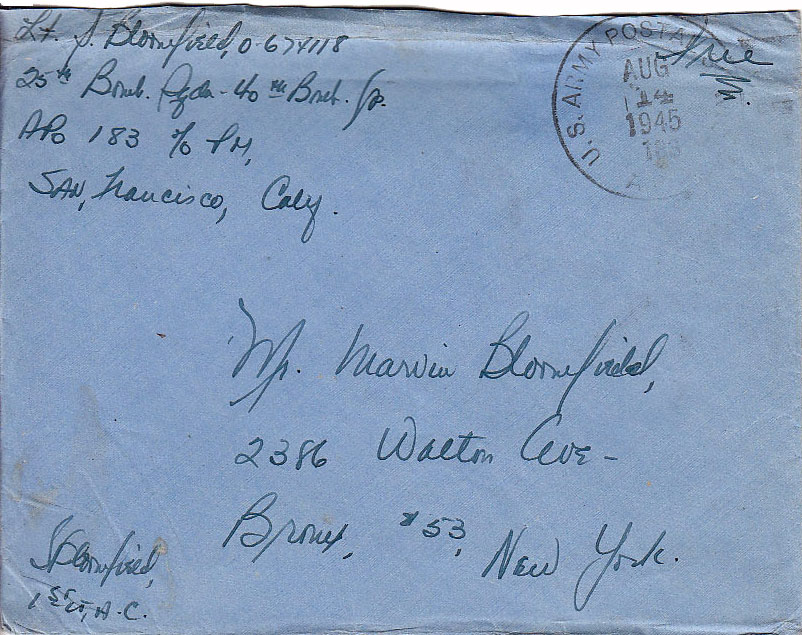 Lt. S. Bloomfield, O-674118
25th Bomb. Sqdn - 40th Bomb. Gp.
APO 183 % PM,
SAN, Francisco, Calif.
U.S. ARMY POSTAL
AUG
14
1945
Free
Mr. Marvin Bloomfield,
2386 Walton Ave -
Bronx, #53, New York.
S Bloomfield,
1st Lt, A.C.